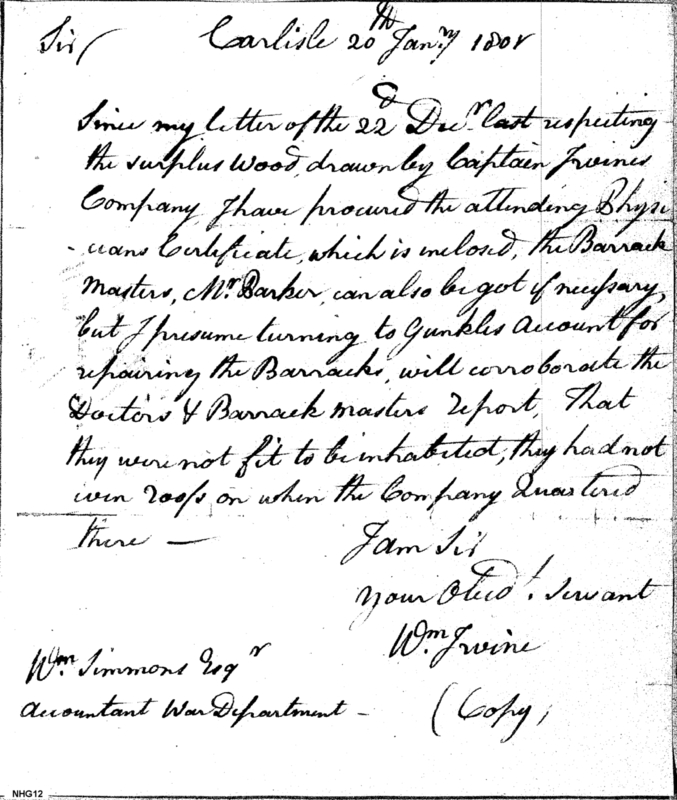 Sir/ Carlisle 20th Janry 1801
Since my letter of the 22d Decr. last respecting
the surplus Wood, drawn by Captain Irvines
Company, I have procured the attending Physi
- cians Certificate, which is inclosed, the Barrack
Masters, Mr Barker, can also be got if necessary,
but I presume turning to Gunkles Account for
repairing the Barracks, will corroborate the
Doctors & Barrack masters report, That
they were not fit to be inhabited, they had not
even roofs on when the Company Quartered
there —
I am Sir
your Obed.t Servant
Wm Irvine
Wm. Simmons Esqr
Accountant War Department -
(Copy)
NHG12